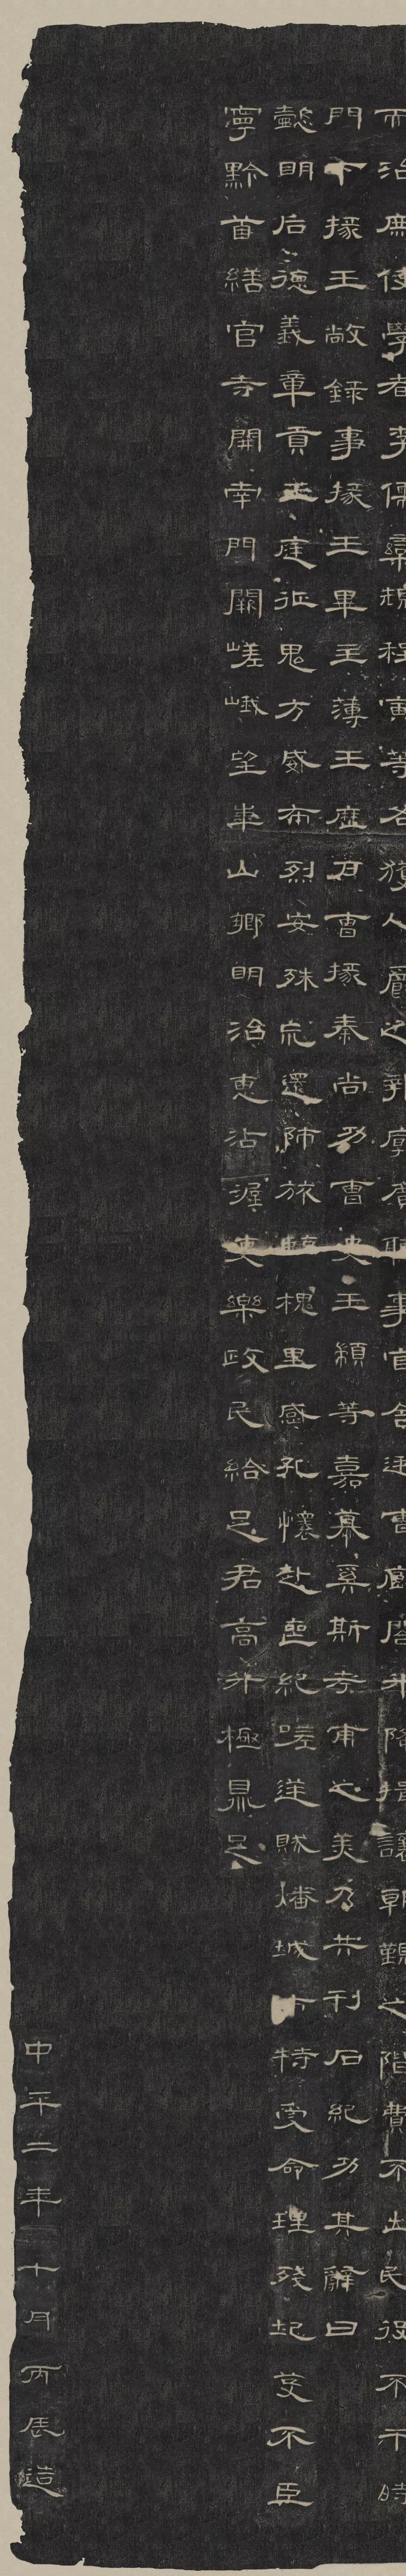 而治庶使學者李儒欒規程寅等各獲人爵之報廓廣聽事官舍廷曹廊閤升降揖讓朝覲之階費不出民役不干時
門下掾王敞錄事掾王畢主薄王歷戶曹掾秦尚功曹史王顓等嘉慕奚斯考甫之美乃共刊石紀功其辭曰
懿明后德義章貢王庭征鬼方威布烈安殊巟還師旅臨槐里感孔懷赴喪紀嗟逆賊燔城市特受命理殘圮芟不臣
寧黔首繕官寺開南門闕嵯峨望華山鄉明治惠沾渥吏樂政民給足君高升極鼎足
中平二年十月丙辰造